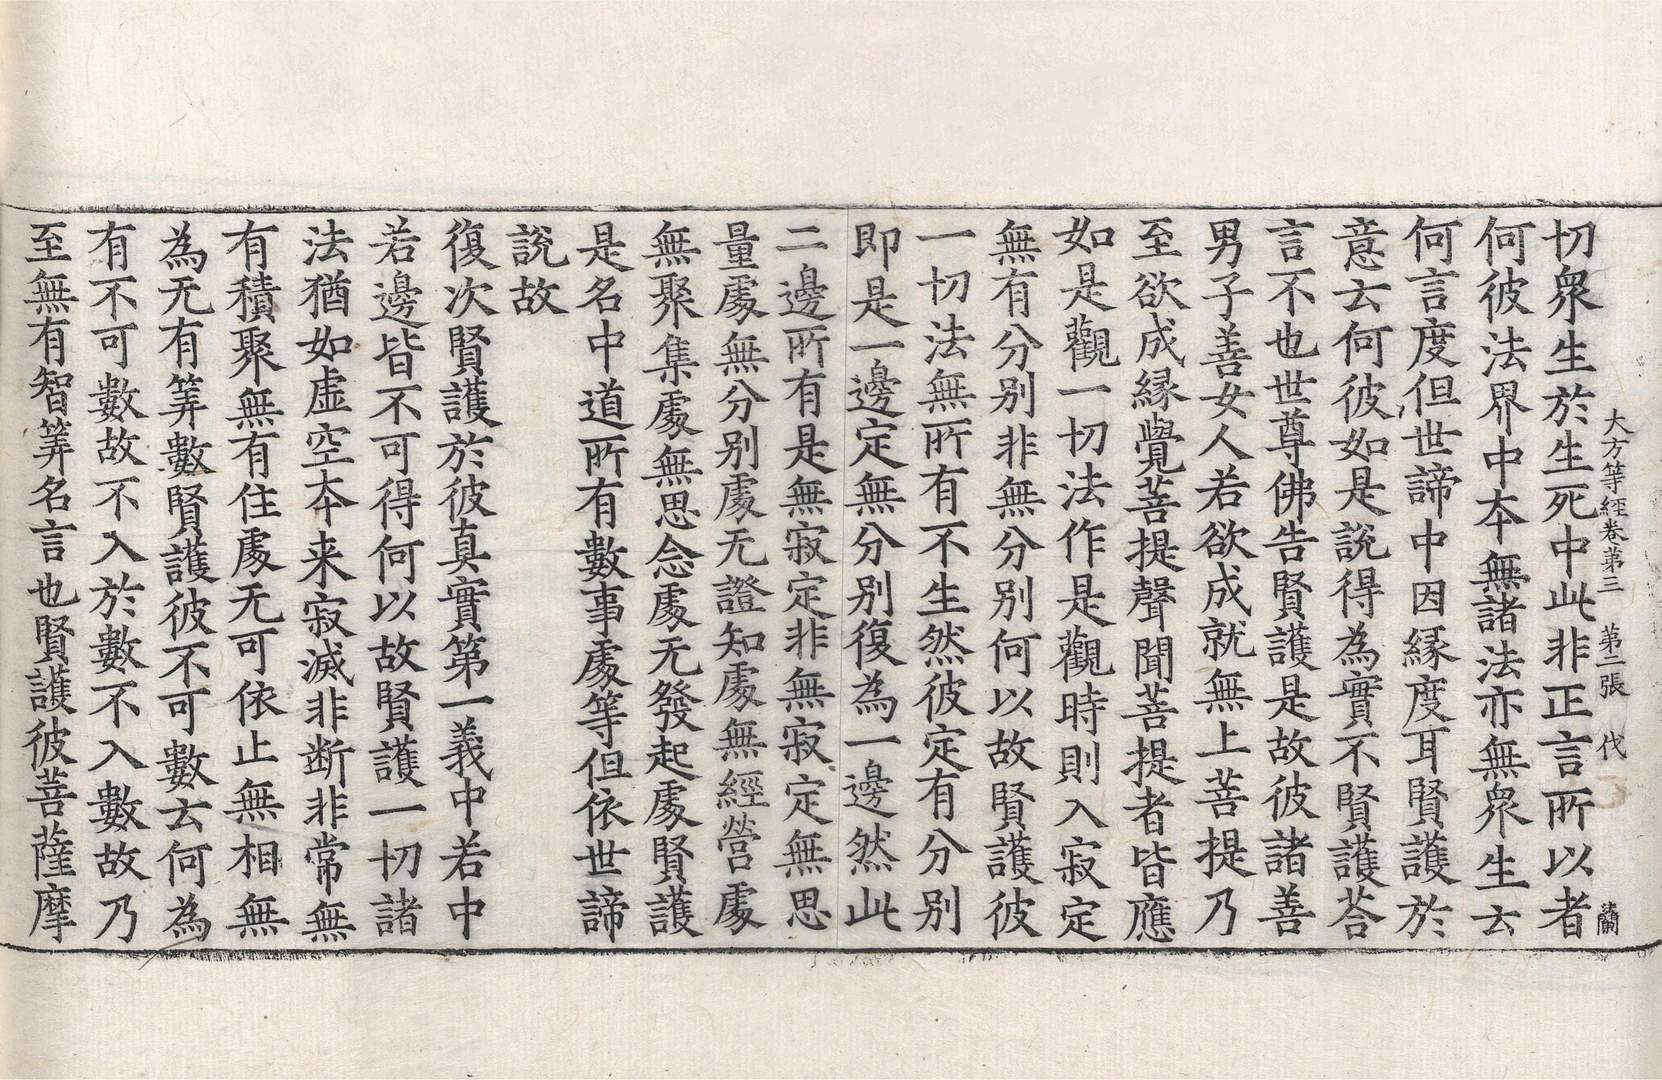 大方等經卷第三　第二張　代　法蘭
切衆生於生死中此非正言所以者
何彼法界中夲無諸法亦無衆生云
何言度但世諦中因縁度耳賢護於
意云何彼如是說得為實不賢護荅
言不也世尊佛告賢護是故彼諸善
男子善女人若欲成就無上菩提乃
至欲成縁覺菩提聲聞菩提者皆應
如是觀一切法作是觀時則入寂定
無有分别非無分别何以故賢護彼
一切法無所有不生然彼定有分别
即是一邊定無分别復為一邊然此
二邊所有是無寂定非無寂定無思
量處無分别處无證知處無經營處
無聚集處無思念處无發起處賢護
是名中道所有數事處等但依世諦
說故
復次賢護於彼真實第一義中若中
若邊皆不可得何以故賢護一切諸
法猶如虛空夲来寂滅非断非常無
有積聚無有住處无可依止無相無
為无有筭數賢護彼不可數云何為
有不可數故不入於數不入數故乃
至無有智筭名言也賢護彼菩薩摩